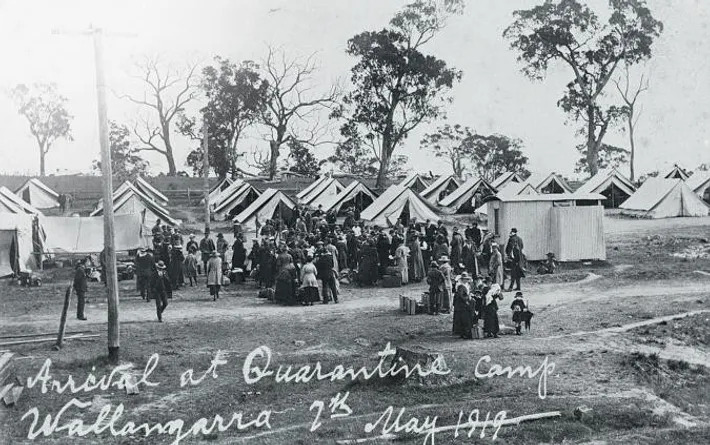 Arrival at Quarantine Camp
Wallangarra 7th May 1919